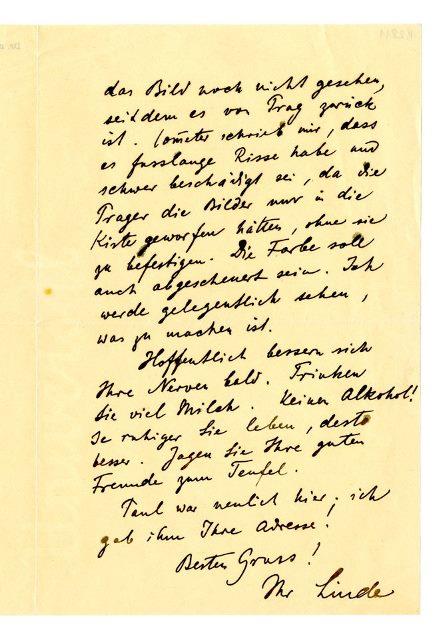 das Bild noch nicht gesehen,
seitdem es von Prag zurück
ist. Cometer schrieb mir, dass
es fusslange Risse habe und
schwer beschädigt sei, da die
Prager die Bilder nur in die
Kiste geworfen hätten, ohne sie
zu befestigen. Die Farbe soll
auch abgescheuert sein. Ich
werde gelegentlich sehen,
was zu machen ist.
Hoffentlich bessern sich
Ihre Nerven bald. Trinken
Sie viel Milch. Keinen Alkohol!
Je ruhiger Sie leben, desto
besser. Jagen Sie Ihre guten
Freunde zum Teufel.
Paul war neulich hier; ich
gab ihm Ihre Adresse.
Besten Gruss!
Ihr Linde